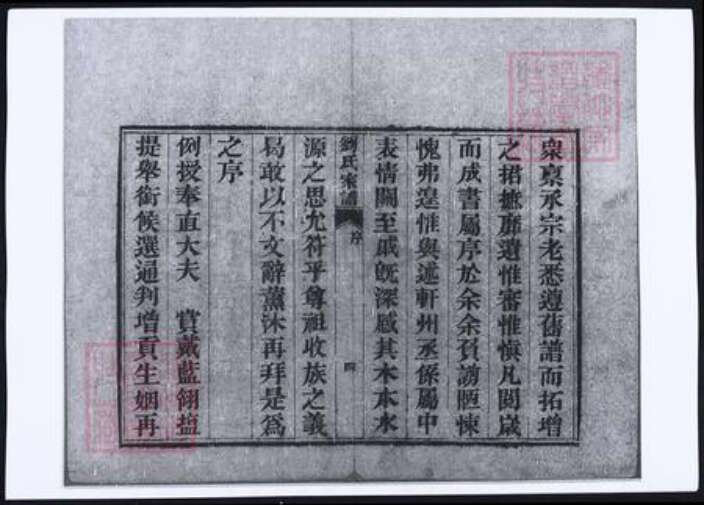 衆稟承宗老悉遵舊譜而拓增
之捃摭靡遺惟審惟愼凡閱歲
而成書屬序於余余負謭陋悚
愧弗遑惟與述軒州丞係屬中
表情關至戚旣深感其木本水
劉氏家譜 序 四
源之思尤符乎尊祖收族之義
曷敢以不文辭薰沐再拜是爲
之序
例授奉直大夫 賞戴藍翎塩
提舉銜候選通判增貢生姻再